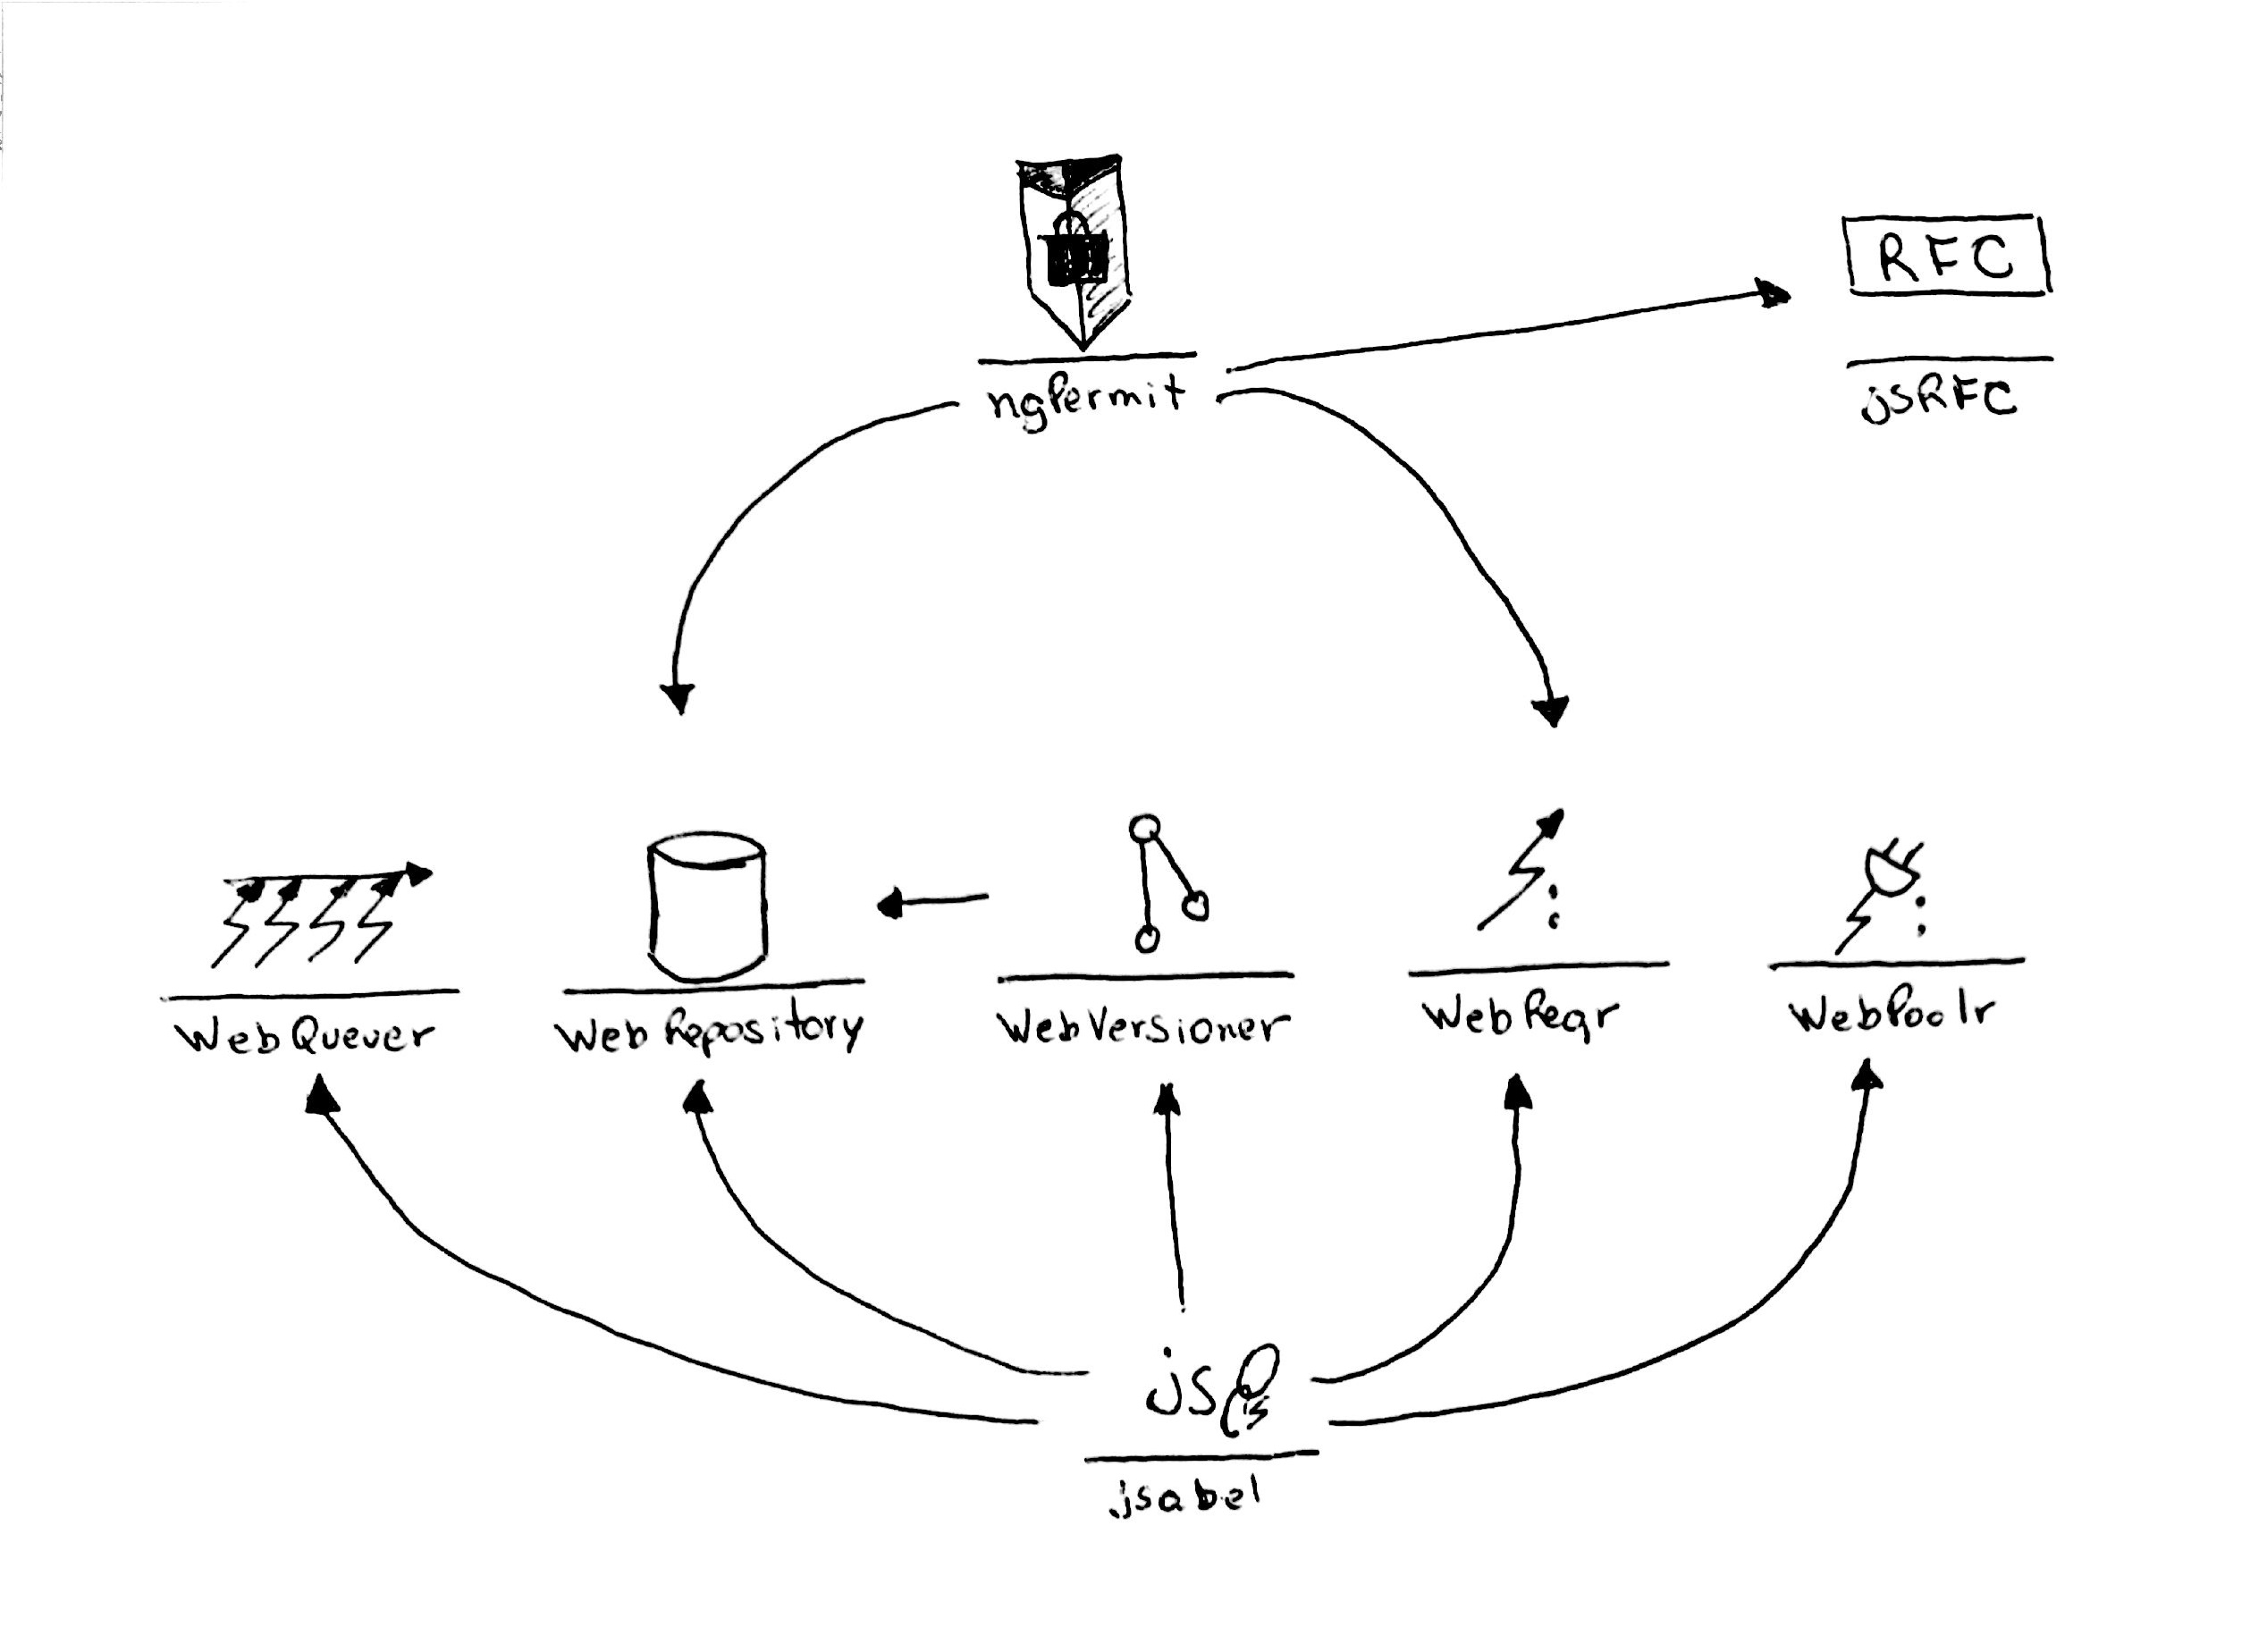 RFC
ngPermit
jsRFC
WebQueuer
WebRepository
WebVersioner
WebReqr
WebPoolr
js
jsabel